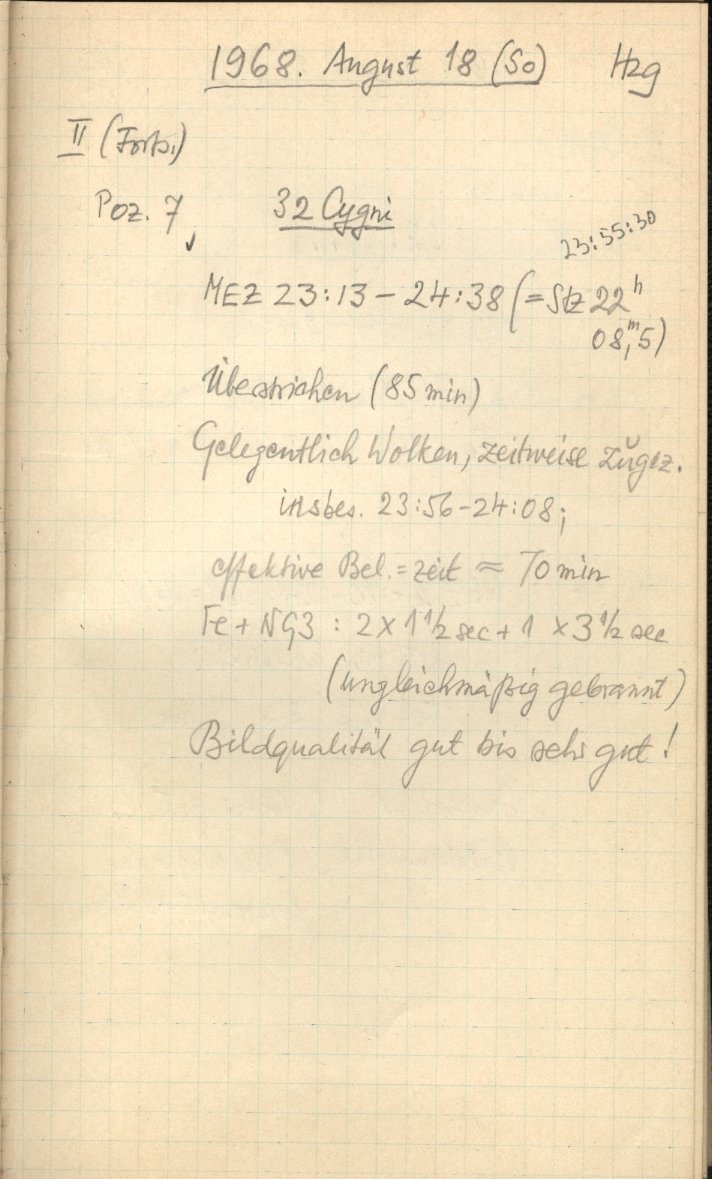 1968. August 18 (So) Hzg
II (Forts.)
Poz. 7, 32 Cygni
23:55:30
MEZ 23:13 – 24:38 (= Stz 22ʰ
08,ᵐ5)
Überstrichen (85 min)
Gelegentlich Wolken, zeitweise zugez.
insbes. 23:56–24:08;
effektive Bel.=zeit ≈ 70 min
Fe + NG3 : 2 × 1 1/2 sec + 1 × 3 1/2 sec
(ungleichmäßig gebrannt)
Bildqualität gut bis sehr gut!